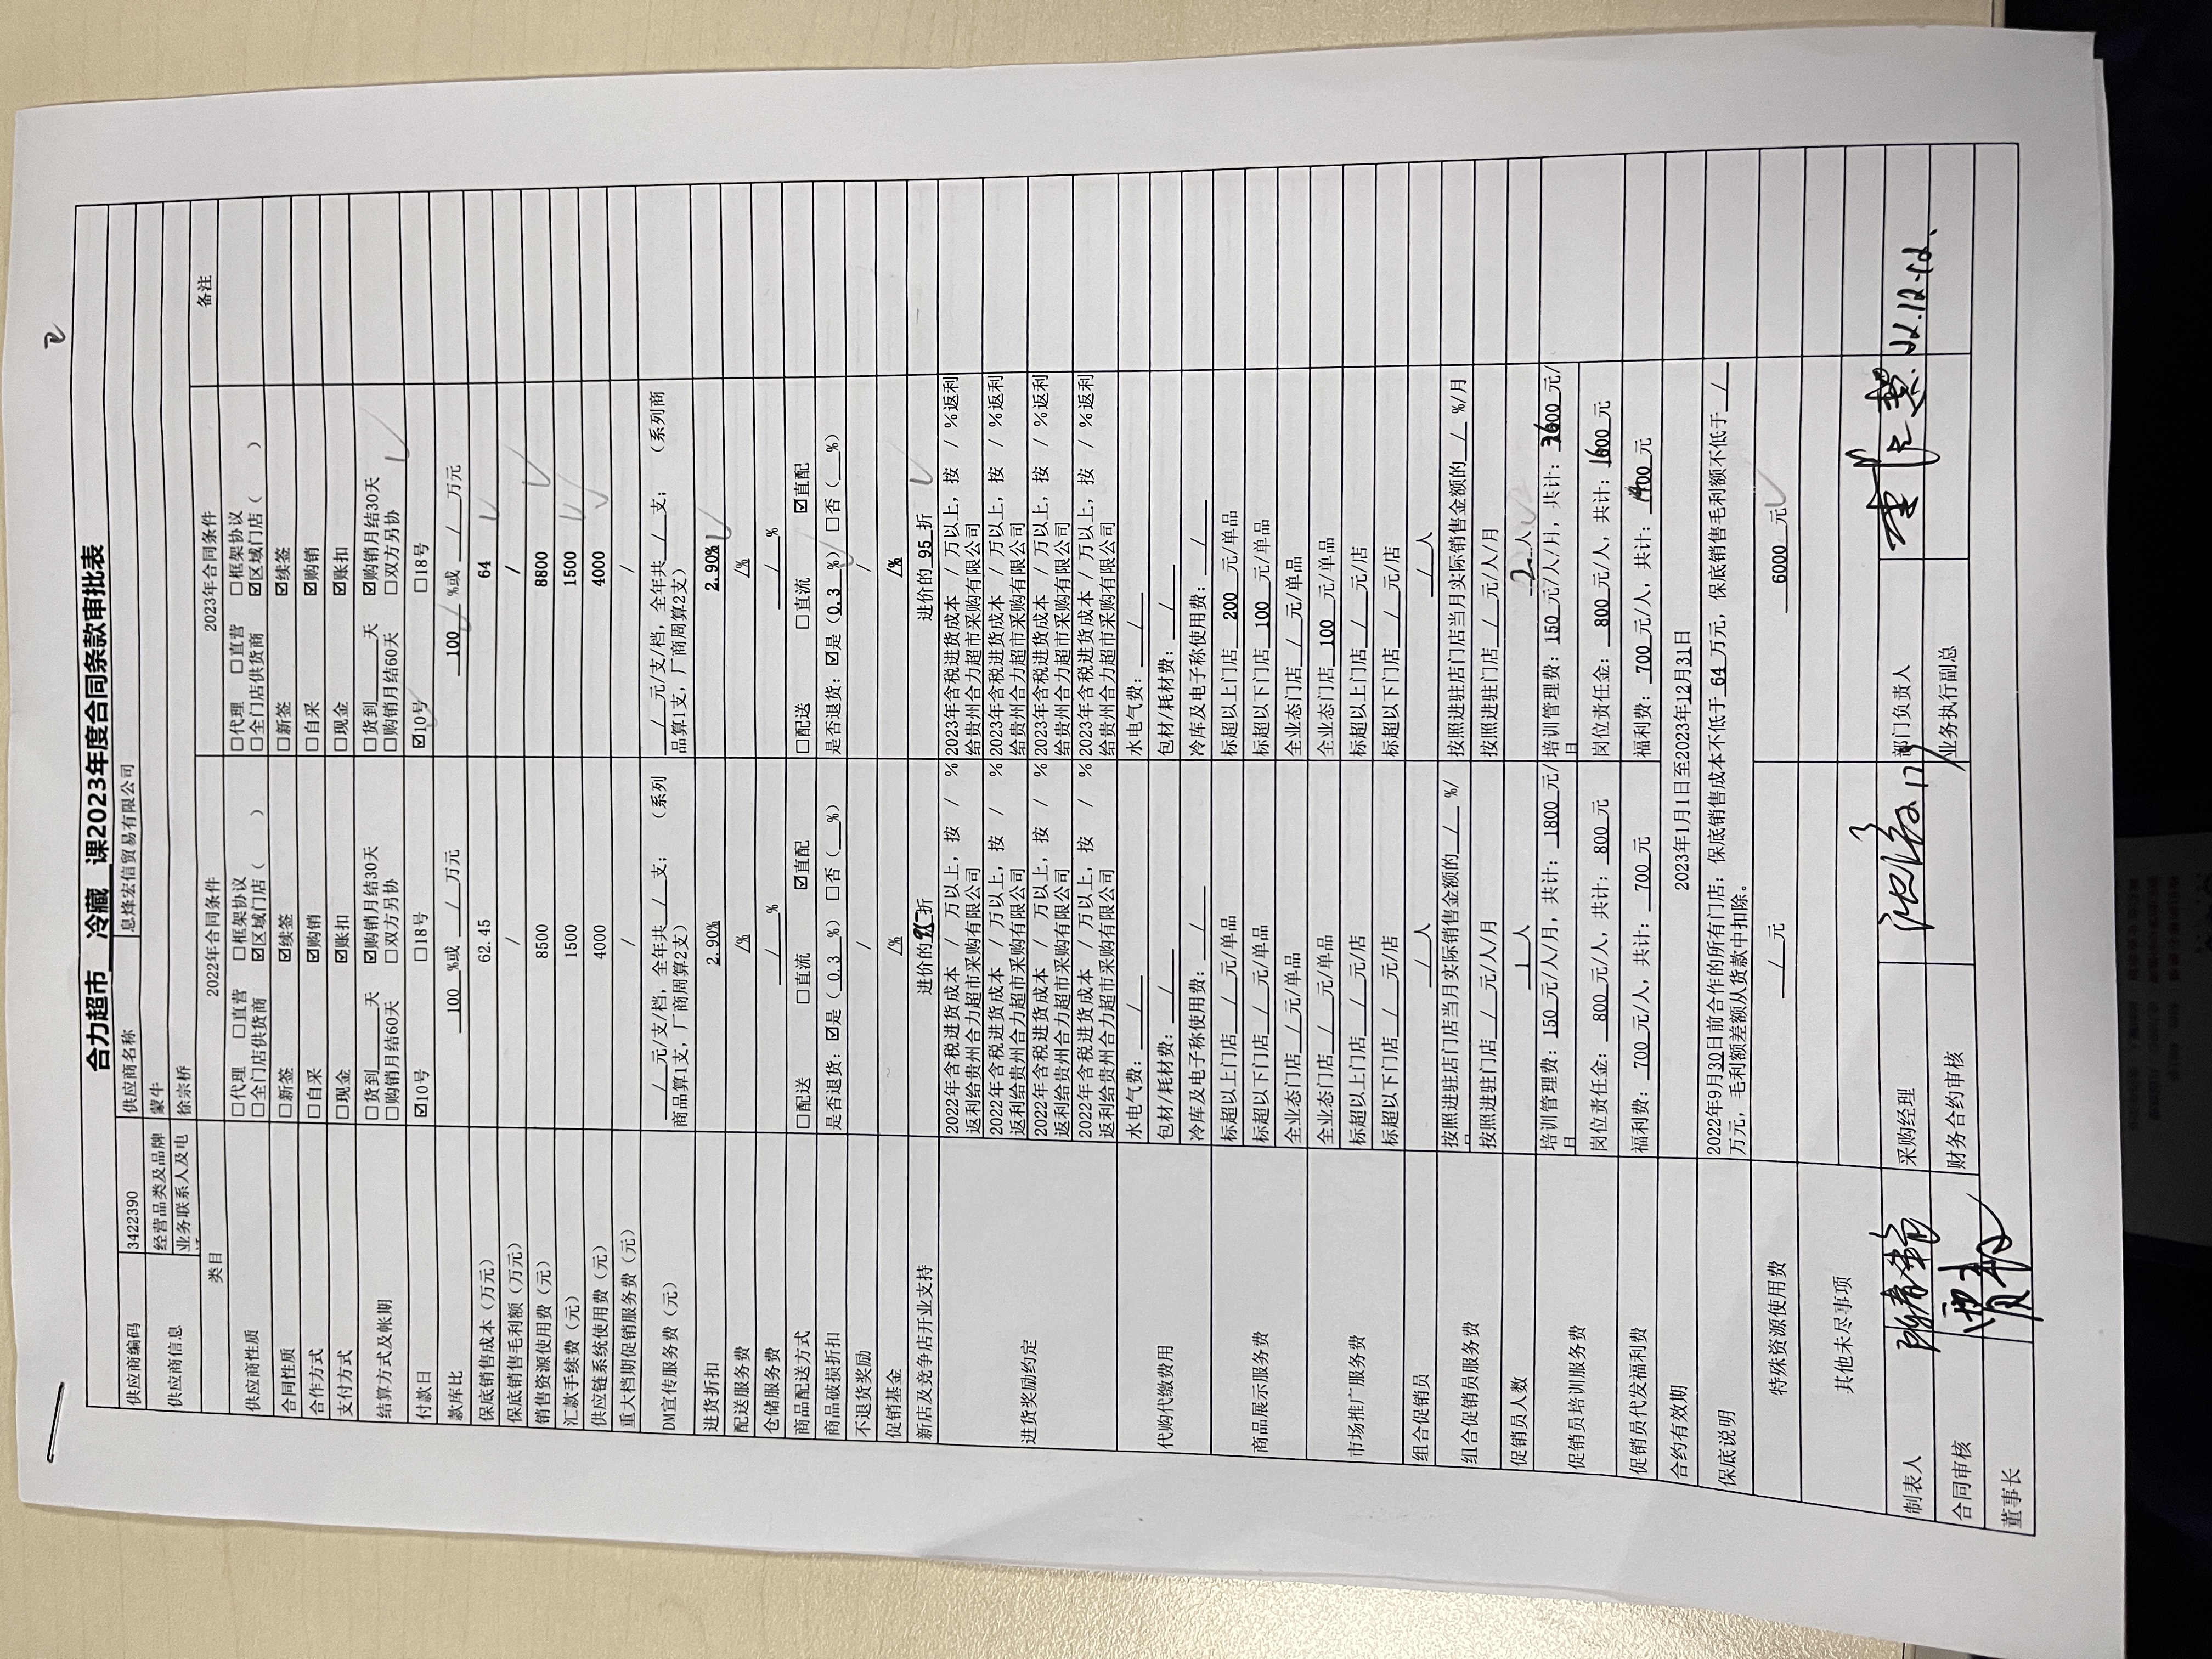 合力超市 冷藏 课2023年度合同条款审批表
供应商编码 3422390 供应商名称 息烽宏信贸易有限公司
供应商信息 经营品类及品牌 蒙牛
业务联系人及电 徐宗桥
类目 2022年合同条件 2023年合同条件 备注
供应商性质 □代理 □直营 □框架协议 □代理 □直营 □框架协议
□全门店供货商 ☑区域门店( ) □全门店供货商 ☑区域门店( )
合同性质 □新签 ☑续签 □新签 ☑续签
合作方式 □自采 ☑购销 □自采 ☑购销
支付方式 □现金 ☑账扣 □现金 ☑账扣
结算方式及帐期 □货到____天 ☑购销月结30天 □货到____天 ☑购销月结30天
□购销月结60天 □双方另协 □购销月结60天 □双方另协
付款日 ☑10号 □18号 ☑10号 □18号
款库比 100 %或 / 万元 100 %或 / 万元
保底销售成本(万元) 62.45 64
保底销售毛利额(万元) / /
销售资源使用费(元) 8500 8800
汇款手续费(元) 1500 1500
供应链系统使用费(元) 4000 4000
重大档期促销服务费(元) / /
DM宣传服务费(元) / 元/支/档, 全年共 / 支; (系列 / 元/支/档, 全年共 / 支; (系列商
商品算1支, 厂商周算2支) 品算1支, 厂商周算2支)
进货折扣 2.90% 2.90%
配送服务费 /% /%
仓储服务费 / % / %
商品配送方式 □配送 □直流 ☑直配 □配送 □直流 ☑直配
商品破损折扣 是否退货: ☑是( 0.3 %) □否(__%) 是否退货: ☑是(0.3 %) □否(__%)
不退货奖励 / /
促销基金 /% /%
新店及竞争店开业支持 进价的 折 进价的 95 折
进货奖励约定 2022年含税进货成本 / 万以上, 按 / % 2023年含税进货成本 / 万以上, 按 / %返利
返利给贵州合力超市采购有限公司 给贵州合力超市采购有限公司
2022年含税进货成本 / 万以上, 按 / % 2023年含税进货成本 / 万以上, 按 / %返利
返利给贵州合力超市采购有限公司 给贵州合力超市采购有限公司
2022年含税进货成本 / 万以上, 按 / % 2023年含税进货成本 / 万以上, 按 / %返利
返利给贵州合力超市采购有限公司 给贵州合力超市采购有限公司
2022年含税进货成本 / 万以上, 按 / % 2023年含税进货成本 / 万以上, 按 / %返利
返利给贵州合力超市采购有限公司 给贵州合力超市采购有限公司
代购代缴费用 水电气费: / 水电气费: /
包材/耗材费: / 包材/耗材费: /
冷库及电子称使用费: / 冷库及电子称使用费: /
商品展示服务费 标超以上门店 / 元/单品 标超以上门店 200 元/单品
标超以下门店 / 元/单品 标超以下门店 100 元/单品
全业态门店 / 元/单品 全业态门店 / 元/单品
市场推广服务费 全业态门店 / 元/单品 全业态门店 100 元/单品
标超以上门店 / 元/店 标超以上门店 / 元/店
标超以下门店 / 元/店 标超以下门店 / 元/店
组合促销员 / 人 / 人
组合促销员服务费 按照进驻店门店当月实际销售金额的 / %/ 按照进驻店门店当月实际销售金额的 / %/月
按照进驻门店 / 元/人/月 按照进驻门店 / 元/人/月
促销员人数 1 人 2 人
促销员培训服务费 培训管理费: 150 元/人/月, 共计: 1800 元/ 培训管理费: 150 元/人/月, 共计: 3600 元/
日 日
岗位责任金: 800 元/人, 共计: 800 元 岗位责任金: 800 元/人, 共计: 1600 元
促销员代发福利费 福利费: 700 元/人, 共计: 700 元 福利费: 700 元/人, 共计: 1400 元
合约有效期 2023年1月1日至2023年12月31日
保底说明 2022年9月30日前合作的所有门店: 保底销售成本不低于 64 万元, 保底销售毛利额不低于 /
万元, 毛利额差额从货款中扣除。
特殊资源使用费 / 元 6000 元
其他未尽事项
制表人 采购经理 部门负责人 22.12.12
合同审核 财务合约审核 业务执行副总
董事长